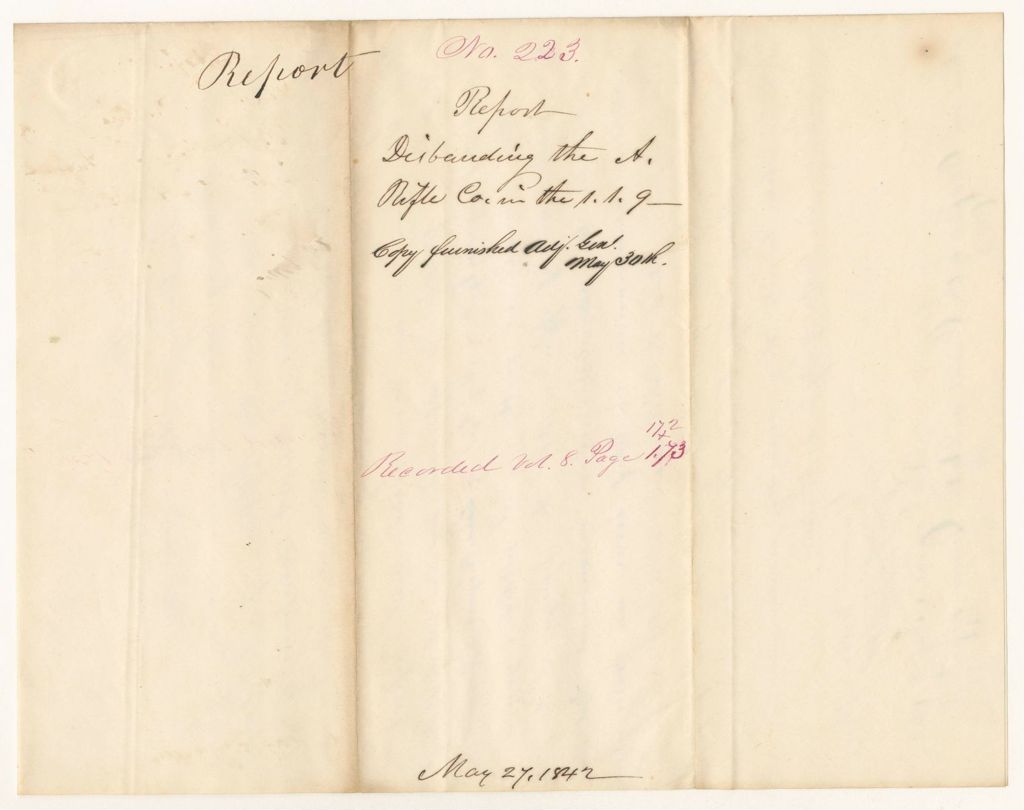 Report
No. 223.
Report
Disbanding the A.
Rifle Co. in the 1. 1. 9
Copy furnished Adj. Genl.
May 30th.
172
+
Recorded Vol. 8. Page 173
May 27, 1842